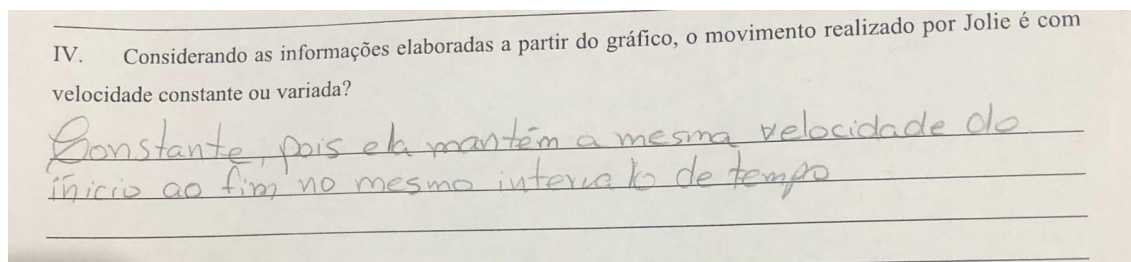 IV. Considerando as informações elaboradas a partir do gráfico, o movimento realizado por Jolie é com
velocidade constante ou variada?
Constante, pois ela mantém a mesma velocidade do
ínicio ao fim no mesmo intervalo de tempo